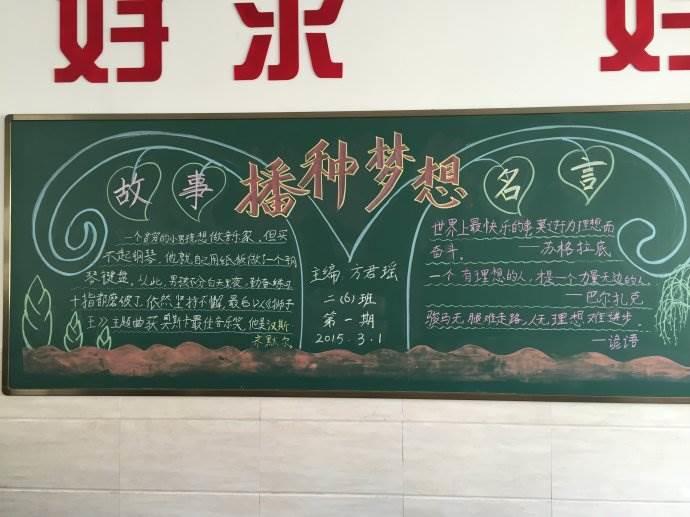 好 乐 好
播种梦想
故事
一个贫穷的小男孩想做音乐家，但买
不起钢琴，他就自己用纸板做了一个钢
琴键盘，从此，男孩不分白天黑夜，勤奋练习
十指都磨破了，依然坚持不懈，最后以《狮子
王》主题曲获奥斯卡最佳音乐奖，他是汉斯
季默尔
主编 方君瑶
二（6）班
第一期
2015.3.1
名言
世界上最快乐的事莫过于为理想而
奋斗。——苏格拉底
一个有理想的人，是一个力量无边的人
——巴尔扎克
骏马无腿难走路，人无理想难进步
—谚语